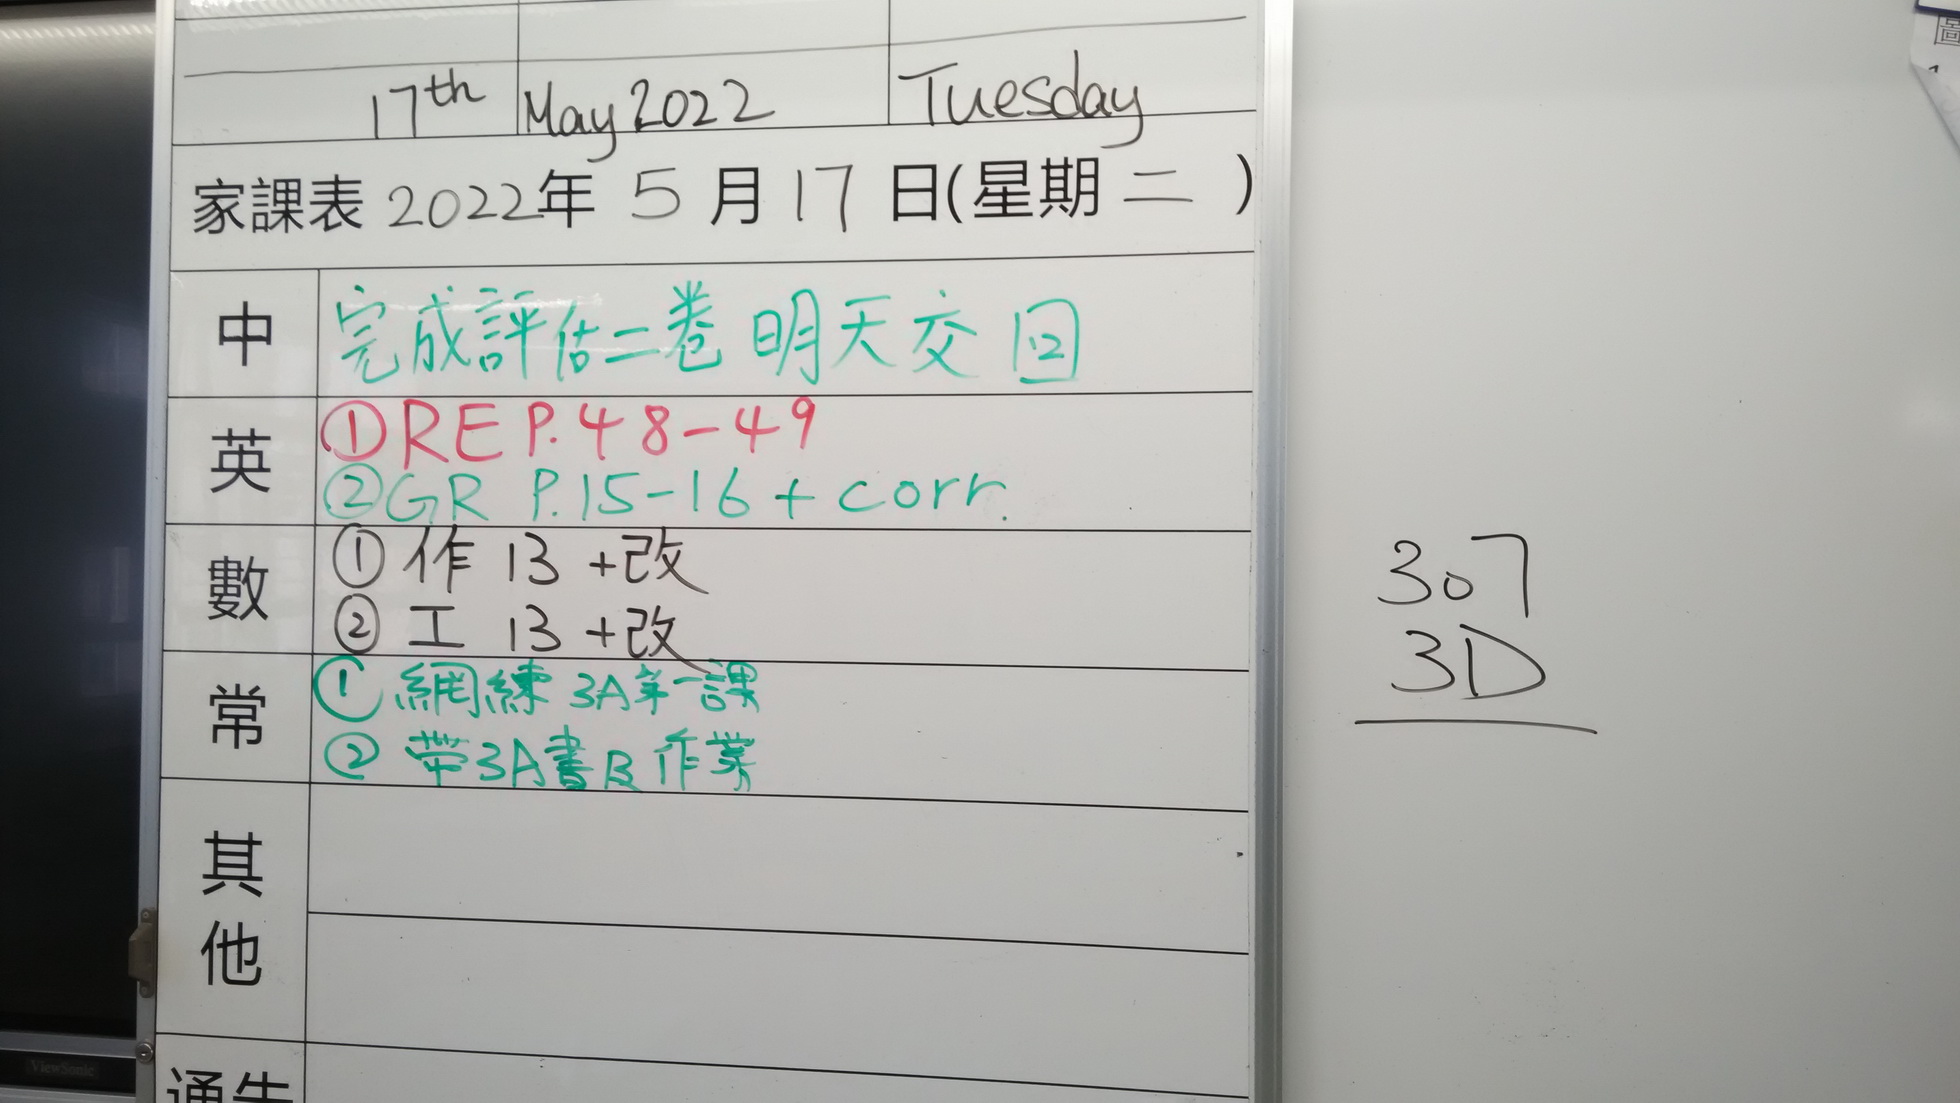 17th May 2022 Tuesday
家課表 2022年 5 月 17 日(星期 二 )
中 完成評估二卷 明天交回
英 ① RE P.48-49
② GR P.15-16 + corr.
數 ① 作 13 +改
② 工 13 +改
常 ① 網練 3A第一課
② 帶3A書及作業
其他
通告
307
3D
ViewSonic